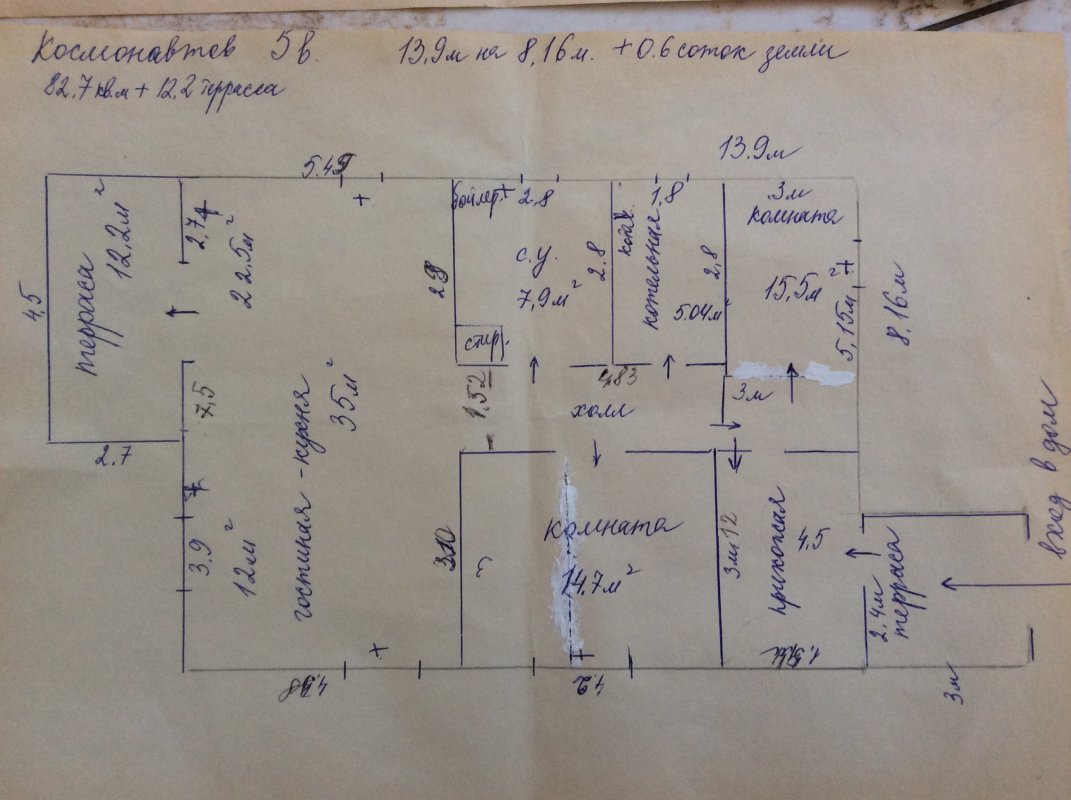 Космонавтов 5в. 13,9м на 8,16м. + 0.6 соток земли
82.7 кв.м + 12.2 терраса
13.9м
5.45
4,5
терраса 12,2м²
2.7
2,7
22.5м²
7,5
3.9
12м²
гостиная - кухня 35м²
бойлер.
2.8
с.у.
7,9м²
2.8
стир.
1.52
котел
1,8
котельная
5.04м²
2,8
3м
комната
15,5м²
5,15м
8,16м
4,83
холл
3м
комната
14.7м²
4.2
3м12
прихожая
4,5
2.4м
терраса
3м
вход в дом